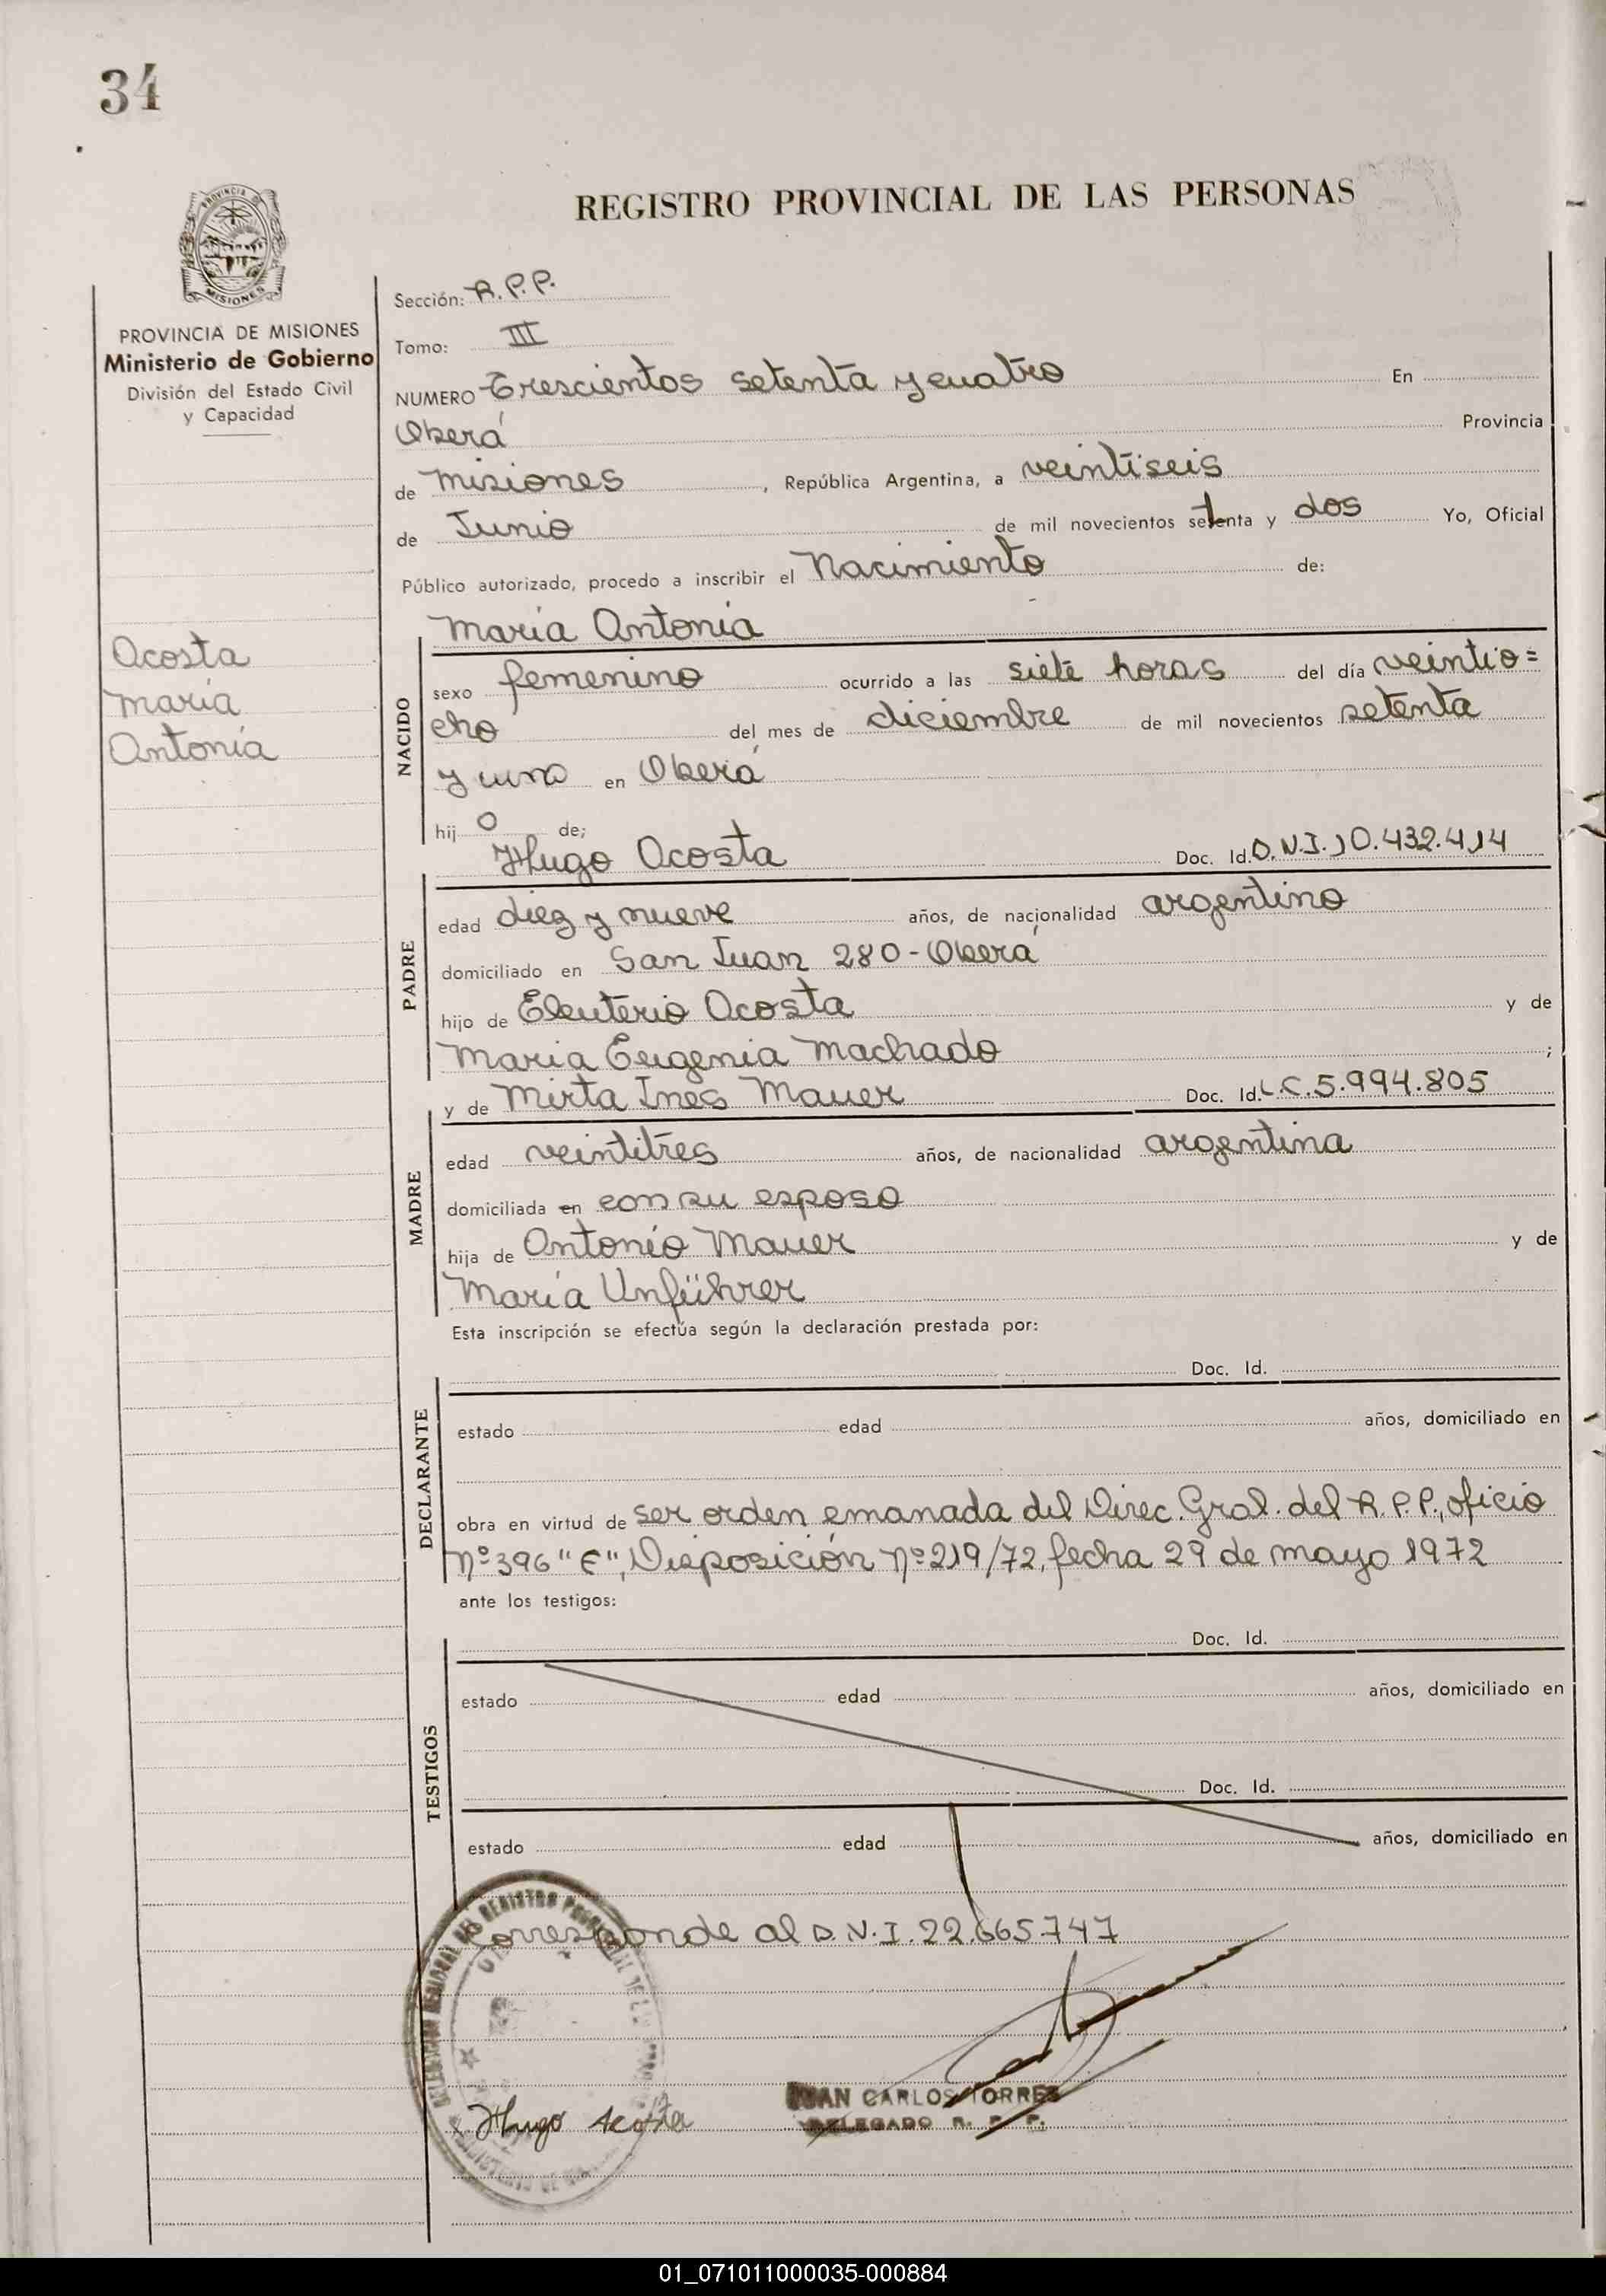 34
REGISTRO PROVINCIAL DE LAS PERSONAS
PROVINCIA
MISIONES
PROVINCIA DE MISIONES
Ministerio de Gobierno
División del Estado Civil
y Capacidad
Acosta
María
Antonia
Sección: R.P.P.
Tomo: III
NUMERO Trescientos setenta y cuatro En
Oberá Provincia
de Misiones, República Argentina, a veintiseis
de Junio de mil novecientos setenta y dos Yo, Oficial
Público autorizado, procedo a inscribir el Nacimiento de:
NACIDO
María Antonia
sexo femenino ocurrido a las siete horas del día veintio=
cho del mes de diciembre de mil novecientos setenta
y uno en Oberá
hij o de;
PADRE
Hugo Acosta Doc. Id. D.N.I. 10.432.414
edad diez y nueve años, de nacionalidad argentino
domiciliado en San Juan 280 - Oberá
hijo de Eleuterio Acosta y de
Maria Eugenia Machado ;
MADRE
y de Mirta Ines Mauer Doc. Id. L.C. 5.994.805
edad veintitres años, de nacionalidad argentina
domiciliada en con su esposo
hija de Antonio Mauer y de
María Unführer
Esta inscripción se efectúa según la declaración prestada por:
DECLARANTE
Doc. Id.
estado edad años, domiciliado en
obra en virtud de ser orden emanada del Direc. Gral. del R.P.P., oficio
Nº 396 "E", Disposición Nº 219/72, fecha 29 de mayo 1972
ante los testigos:
TESTIGOS
Doc. Id.
estado edad años, domiciliado en
Doc. Id.
estado edad años, domiciliado en
Corresponde al D.N.I. 22.665747
JUAN CARLOS TORRES
DELEGADO R. P. P.
Hugo Acosta
01_071011000035-000884